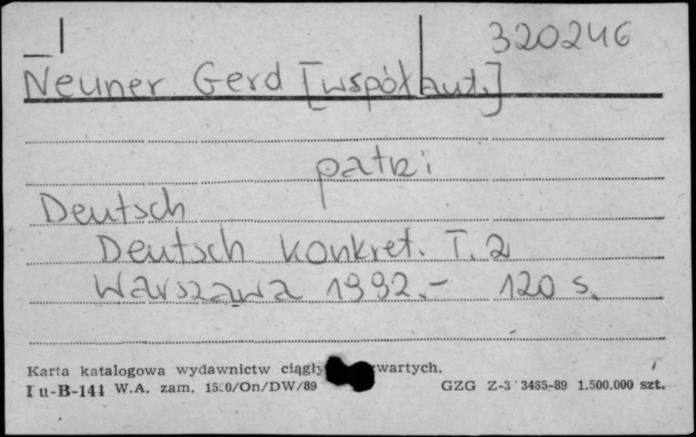 320246
Neuner Gerd [współaut.]
patrz:
Deutsch
Deutsch konkret. T. 2
Warszawa 1992.- 120 s.
Karta katalogowa wydawnictw wartych.
Pu-B-144 W.A. zam. /On/DW/89 GZG Z-3 3485-89 1.500.000 szt.